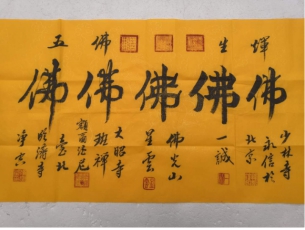 五佛生煇
佛佛佛佛佛
少林寺
永信於
北京
一誠
佛光山
星雲
大昭寺
班禅
額爾德尼
臺北
淨空